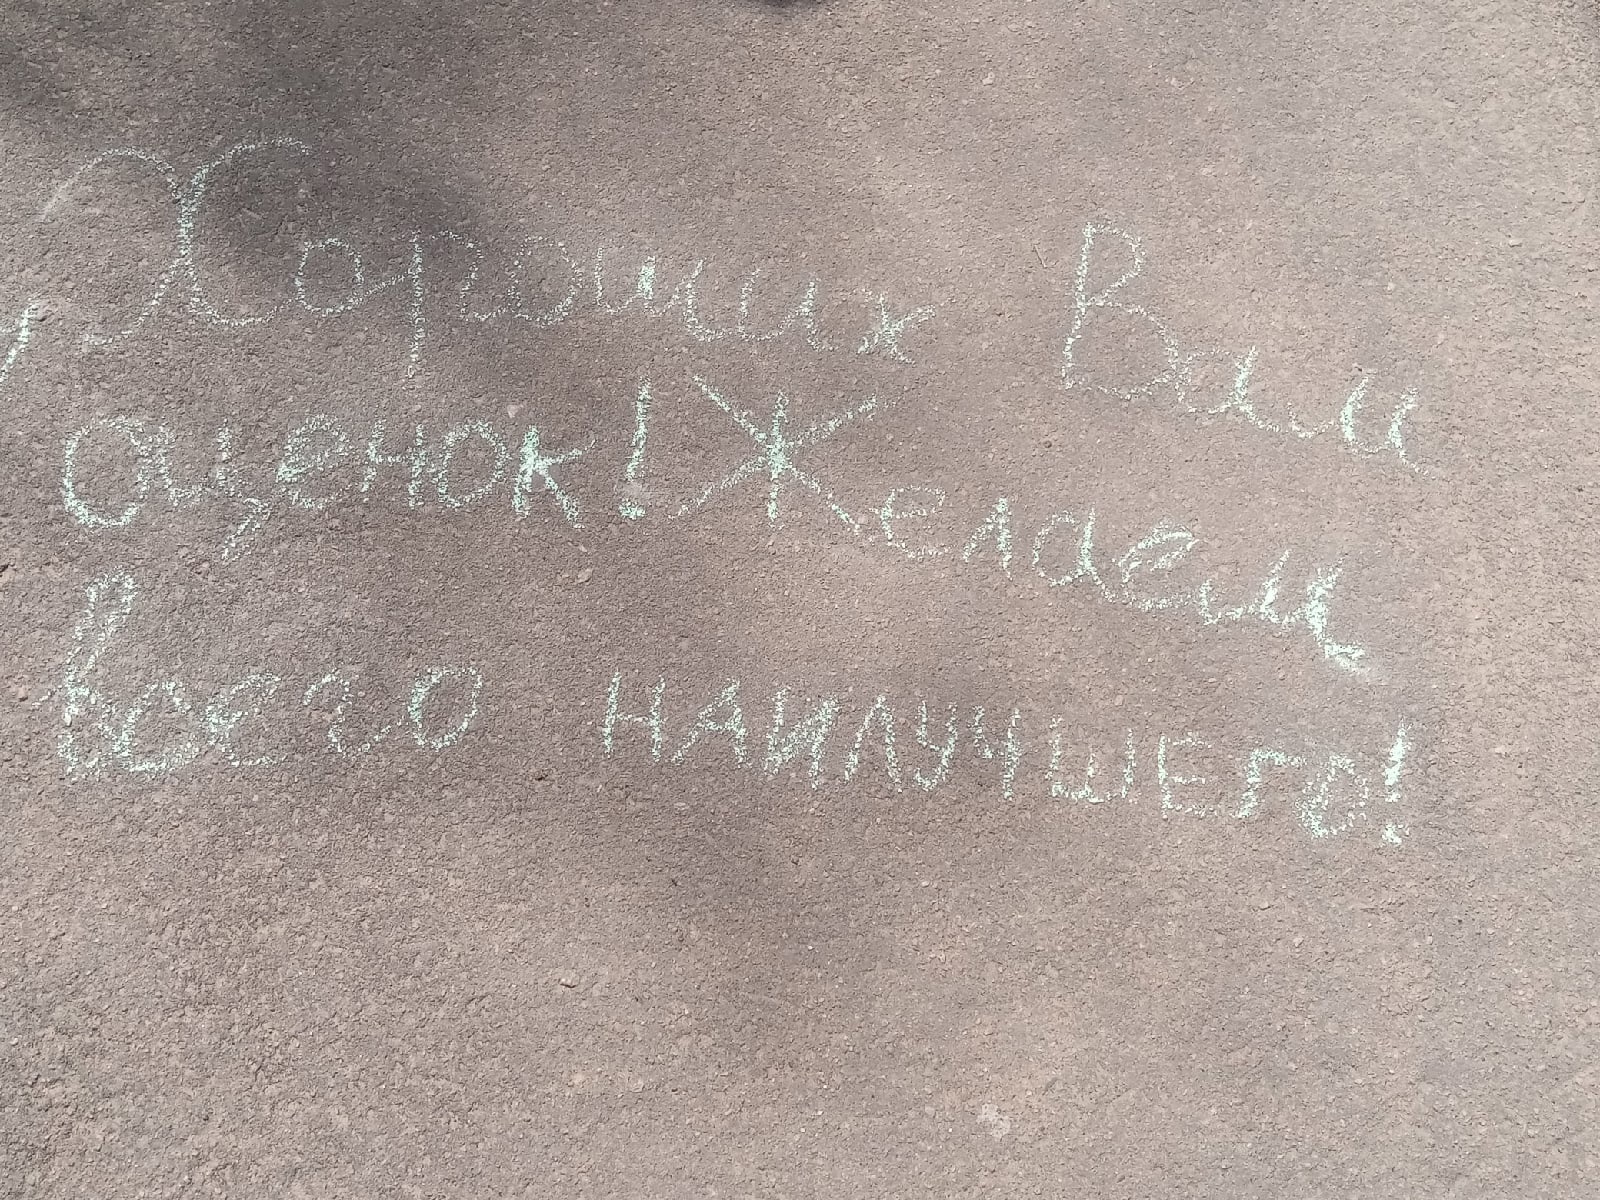 Хороших Вам
оценок! Желаем
всего НАИЛУЧШЕГО!